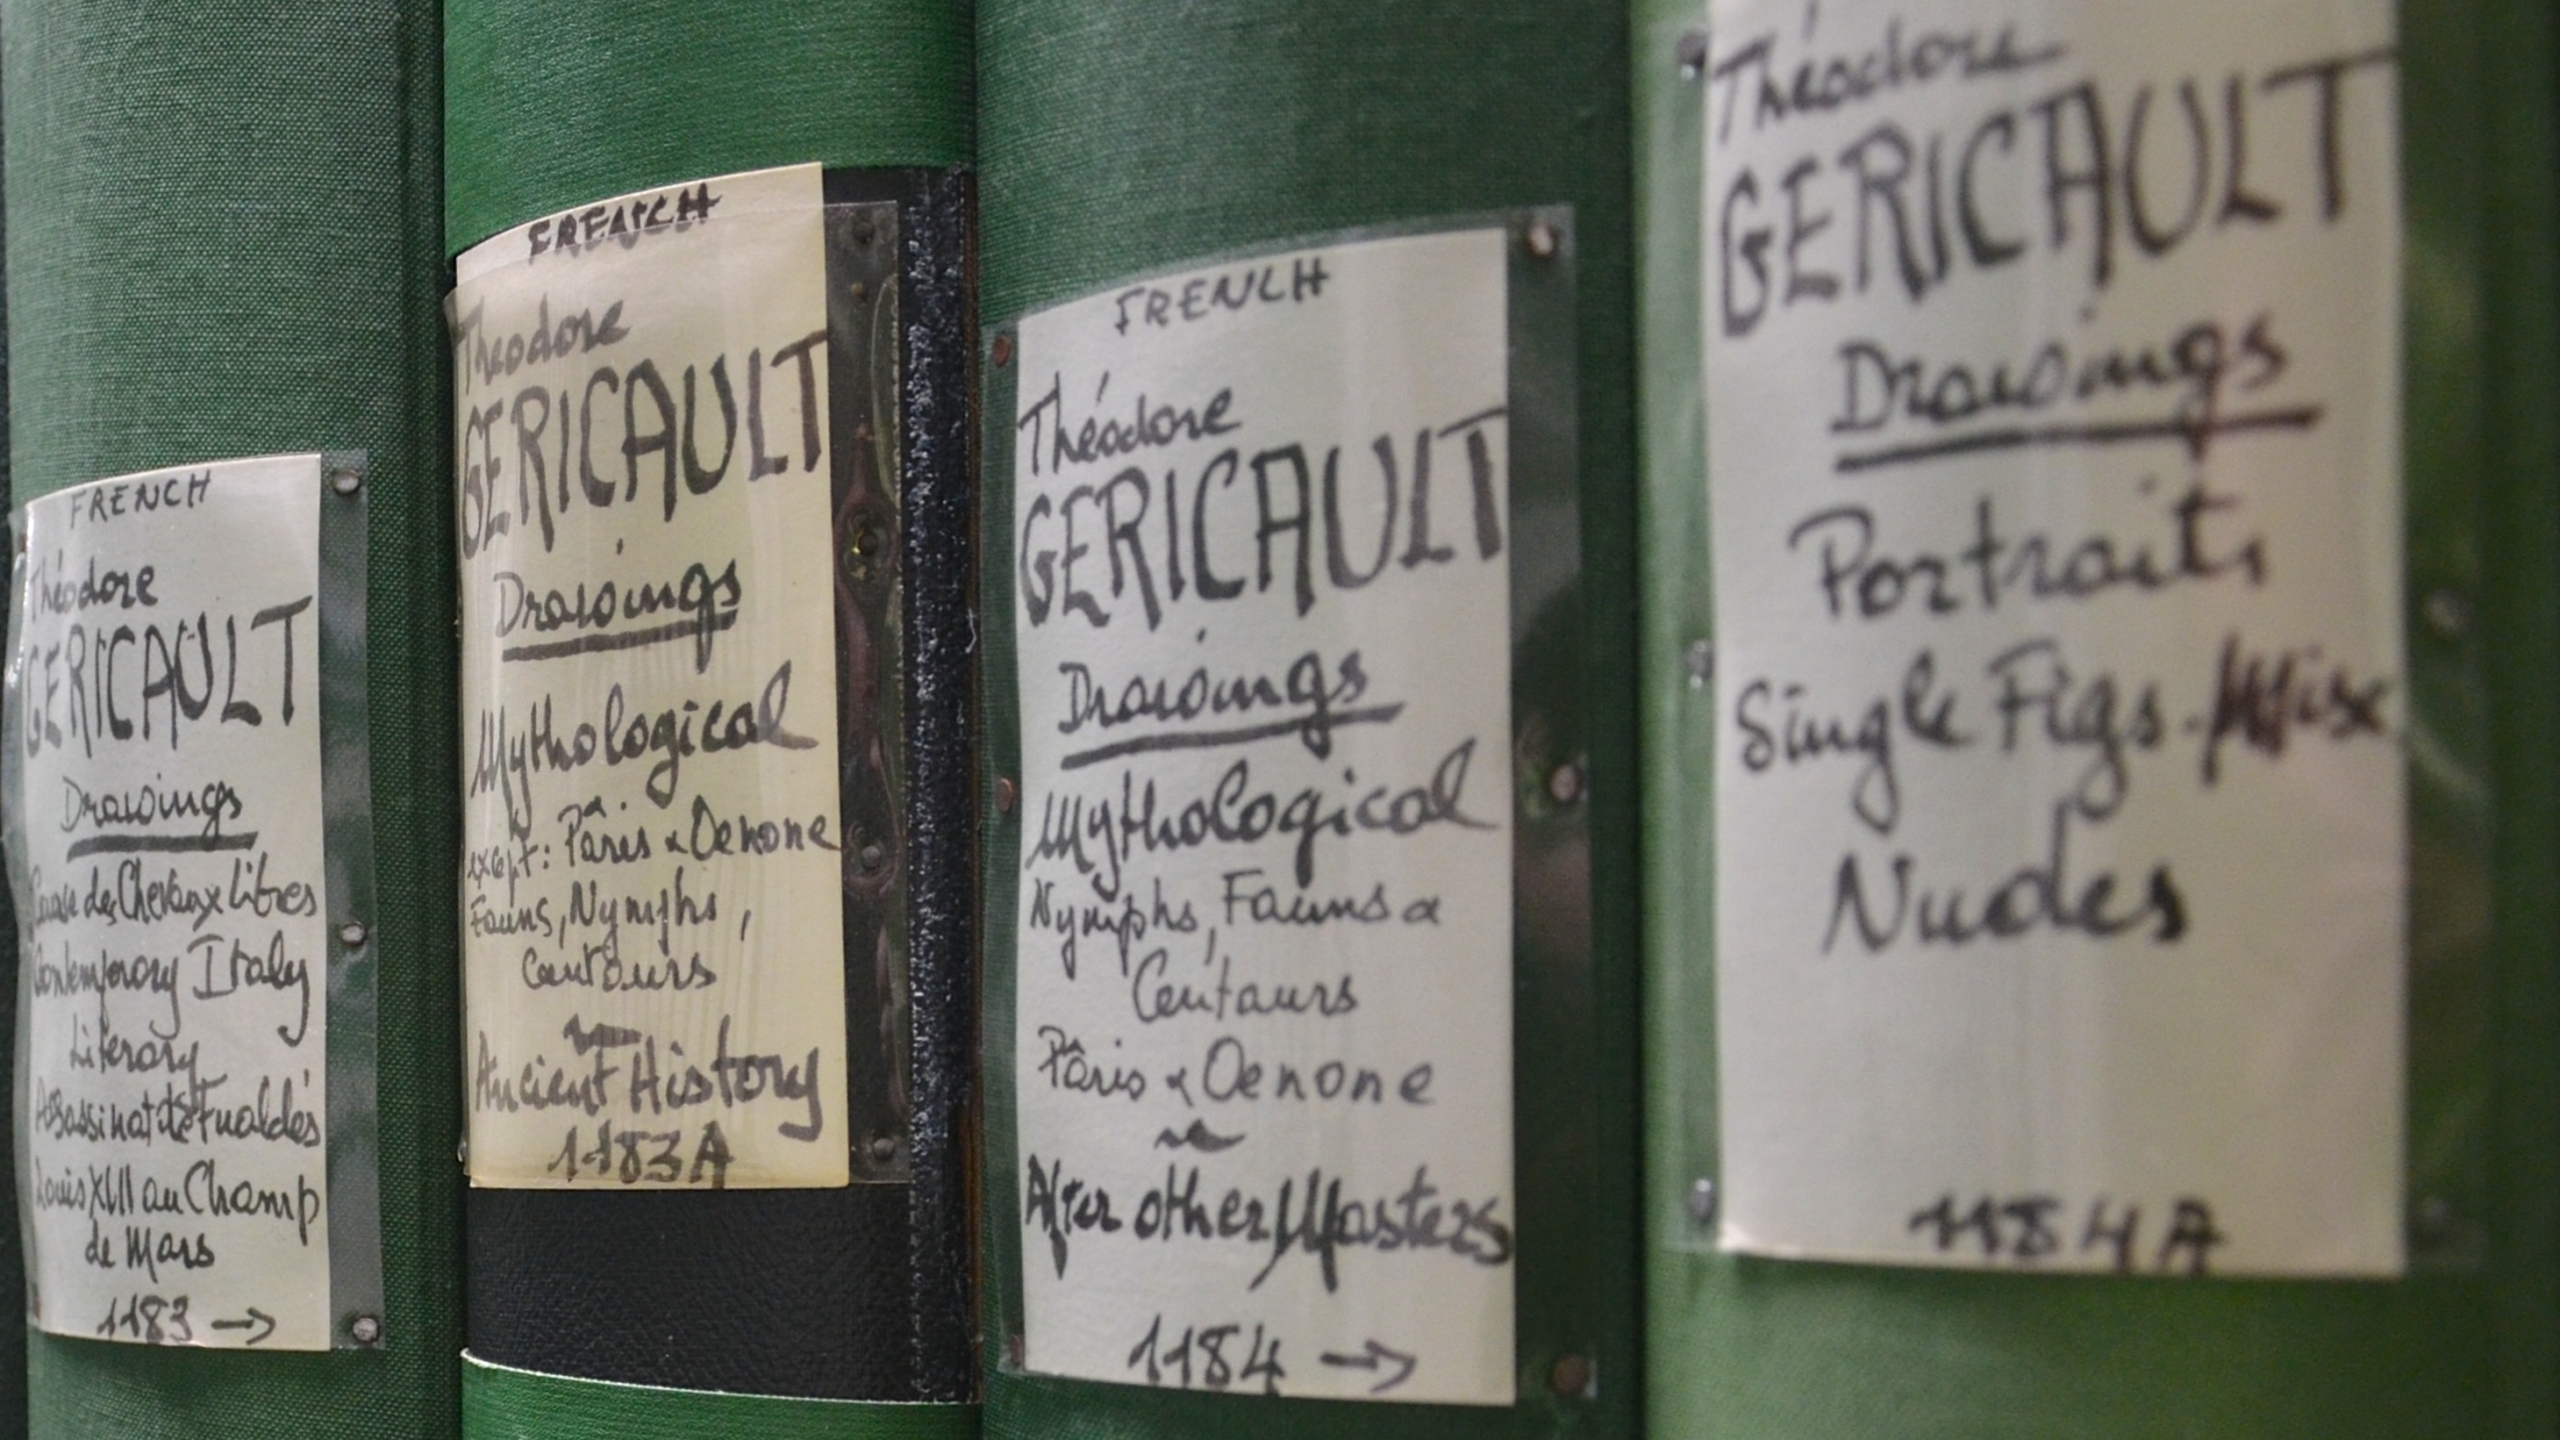 FRENCH
Théodore
GERICAULT
Drawings
Course des Chevaux Libres
Contemporary Italy
Literary
Assassinat de Fualdés
Louis XVIII au Champ
de Mars
1183 →
FRENCH
Theodore
GERICAULT
Drawings
Mythological
except: Pâris & Oenone
Fauns, Nymphs,
Centaurs
Ancient History
1183A
FRENCH
Théodore
GERICAULT
Drawings
Mythological
Nymphs, Fauns &
Centaurs
Pâris & Oenone
After other Masters
1184 →
Théodore
GERICAULT
Drawings
Portraits
Single Figs. Misc
Nudes
1184A